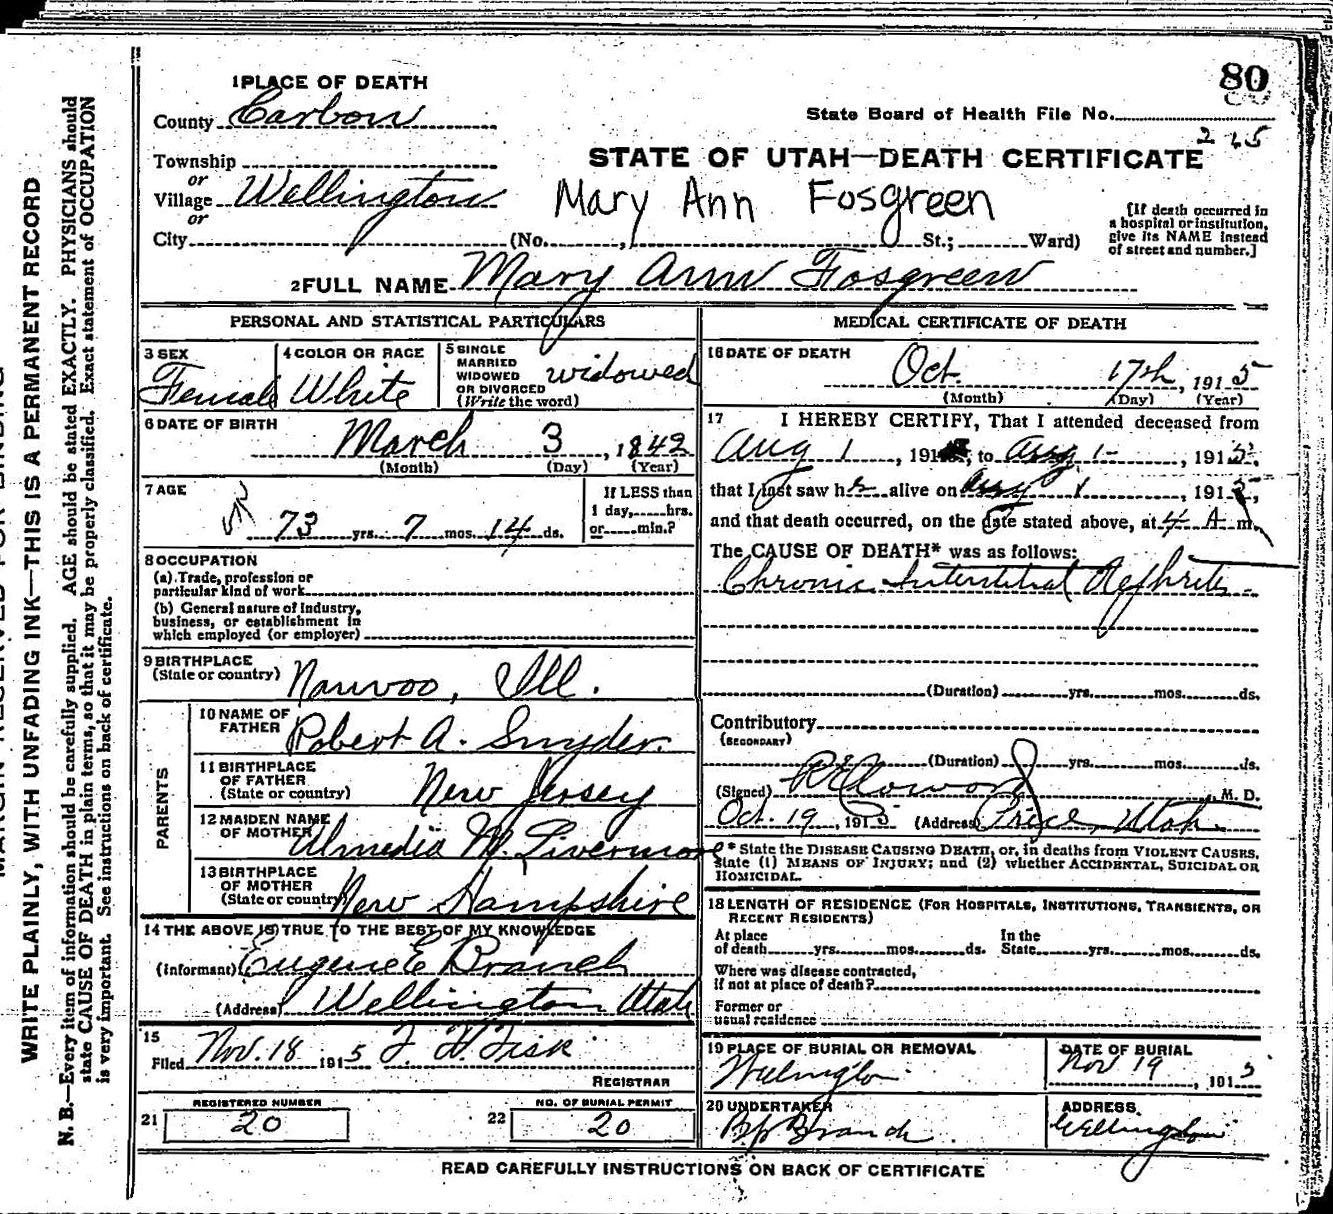 80
1 PLACE OF DEATH
County Carbon
State Board of Health File No.
215
Township
or
Village Wellington
or
City (No. , St.; Ward)
STATE OF UTAH—DEATH CERTIFICATE
Mary Ann Fosgreen
[If death occurred in
a hospital or institution,
give its NAME instead
of street and number.]
2 FULL NAME Mary Ann Fosgreen
PERSONAL AND STATISTICAL PARTICULARS
3 SEX
Female
4 COLOR OR RACE
White
5 SINGLE
MARRIED
WIDOWED
OR DIVORCED
(Write the word)
widowed
6 DATE OF BIRTH
March 3, 1842
(Month) (Day) (Year)
7 AGE
73 yrs. 7 mos. 14 ds.
If LESS than
1 day, hrs.
or min.?
8 OCCUPATION
(a) Trade, profession or
particular kind of work
(b) General nature of industry,
business, or establishment in
which employed (or employer)
9 BIRTHPLACE
(State or country) Nauvoo, Ill.
PARENTS
10 NAME OF
FATHER Robert A. Snyder.
11 BIRTHPLACE
OF FATHER
(State or country) New Jersey
12 MAIDEN NAME
OF MOTHER Almedia M. Livermore
13 BIRTHPLACE
OF MOTHER
(State or country) New Hampshire
14 THE ABOVE IS TRUE TO THE BEST OF MY KNOWLEDGE
(Informant) Eugene E Branch
(Address) Wellington Utah
15
Filed Nov. 18 1915 F. W. Fisk
REGISTRAR
REGISTERED NUMBER
21 20
NO. OF BURIAL PERMIT
22 20
MEDICAL CERTIFICATE OF DEATH
16 DATE OF DEATH
Oct. 17th, 1915
(Month) (Day) (Year)
17 I HEREBY CERTIFY, That I attended deceased from
Aug 1, 191 , to Aug 1-, 1915,
that I last saw her alive on Aug 1, 1915,
and that death occurred, on the date stated above, at 4 A m.
The CAUSE OF DEATH* was as follows:
Chronic Interstitial Nephritis
(Duration) yrs. mos. ds.
Contributory
(SECONDARY)
(Duration) yrs. mos. ds.
(Signed) , M. D.
Oct. 19, 1915 (Address) Price, Utah
* State the DISEASE CAUSING DEATH, or, in deaths from VIOLENT CAUSES,
state (1) MEANS OF INJURY; and (2) whether ACCIDENTAL, SUICIDAL OR
HOMICIDAL.
18 LENGTH OF RESIDENCE (FOR HOSPITALS, INSTITUTIONS, TRANSIENTS, OR
RECENT RESIDENTS)
At place
of death yrs. mos. ds.
In the
State yrs. mos. ds.
Where was disease contracted,
if not at place of death?
Former or
usual residence
19 PLACE OF BURIAL OR REMOVAL
Wellington
DATE OF BURIAL
Nov 19, 1915
20 UNDERTAKER
Branch
ADDRESS
Wellington
READ CAREFULLY INSTRUCTIONS ON BACK OF CERTIFICATE
WRITE PLAINLY, WITH UNFADING INK—THIS IS A PERMANENT RECORD
N. B.—Every item of information should be carefully supplied. AGE should be stated EXACTLY. PHYSICIANS should
state CAUSE OF DEATH in plain terms, so that it may be properly classified. Exact statement of OCCUPATION
is very important. See instructions on back of certificate.